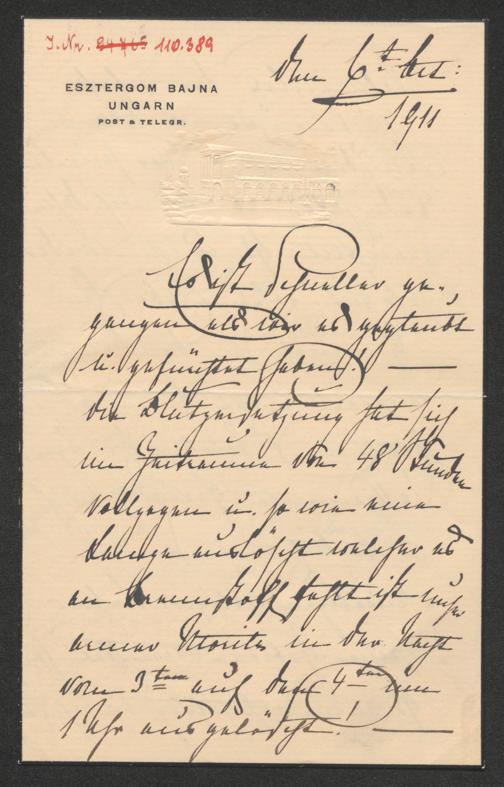 I. Nr. 110.389
ESZTERGOM BAJNA
UNGARN
POST & TELEGR.
den 6t Oct:
1911
Es ist schneller ge-,
gangen als wir es geglaubt
u. gefürchtet haben! —
die Blutzersetzung hat sich
im Zeitraume von 48 Stunden
vollzogen u. so wie eine
Lampe auslöscht welcher es
an Brennstoff fehlt ist unser
armer Moritz in der Nacht
vom 3ten auf den 4ten um
1 Uhr ausgelöscht. —